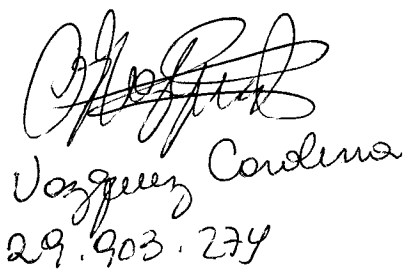 Vazquez Carolina
29.903.274